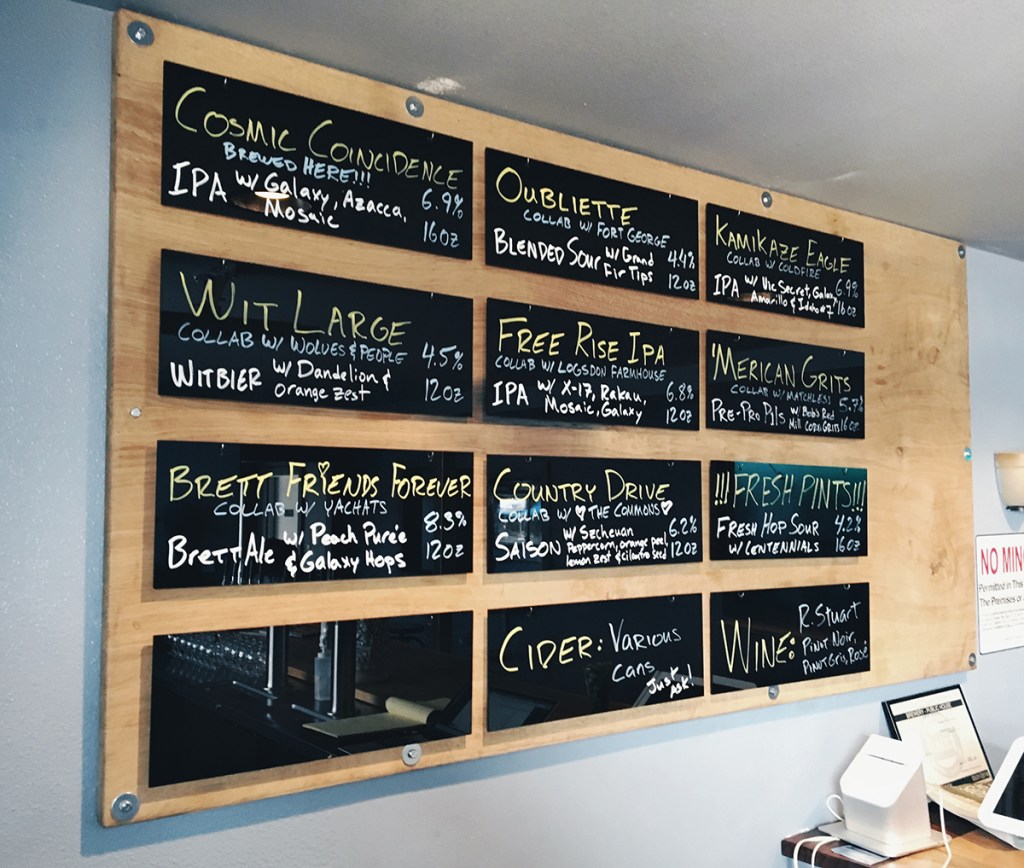 COSMIC COINCIDENCE
BREWED HERE!!!
IPA w/ Galaxy, Azacca, Mosaic
6.9%
16oz
OUBLIETTE
COLLAB W/ FORT GEORGE
BLENDED SOUR w/ Grand Fir Tips
4.4%
12oz
KAMIKAZE EAGLE
COLLAB W/ COLDFIRE
IPA w/ Vic Secret, Galaxy, Amarillo & Idaho #7
6.9%
16oz
WIT LARGE
COLLAB W/ WOLVES & PEOPLE
WITBIER w/ Dandelion & orange zest
4.5%
12oz
FREE RISE IPA
COLLAB W/ LOGSDON FARMHOUSE
IPA w/ X-17, Rakau, Mosaic, Galaxy
6.8%
12oz
'MERICAN GRITS
COLLAB W/ MATCHLESS
PRE-PRO PILS w/ Bob's Red Mill Corn Grits
5.7%
16oz
BRETT FRIENDS FOREVER
COLLAB W/ YACHATS
BRETT ALE w/ Peach Pureé & Galaxy Hops
8.3%
12oz
COUNTRY DRIVE
COLLAB W/ THE COMMONS
SAISON w/ Szcheuan Peppercorn, orange peel, lemon zest & cilantro seed
6.2%
12oz
!!!FRESH PINTS!!!
FRESH HOP SOUR W/ CENTENNIALS
4.2%
16oz
CIDER: VARIOUS
CANS
JUST ASK!
WINE: R. Stuart
PINOT NOIR,
PINOT GRIS, ROSÉ
NO MIN
Permitted in This
The Premises or
BREWERY - PUBLIC HOUSE